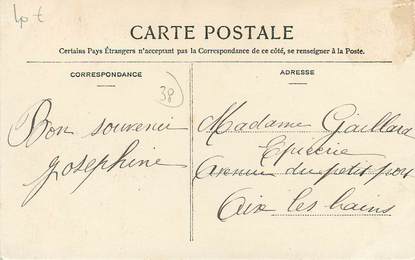 CARTE POSTALE
Certains Pays Étrangers n'acceptant pas la Correspondance de ce côté, se renseigner à la Poste.
CORRESPONDANCE
ADRESSE
38
Bon souvenir
Josephine
Madame Gaillard
Epicerie
Avenue du petit port
Aix les bains